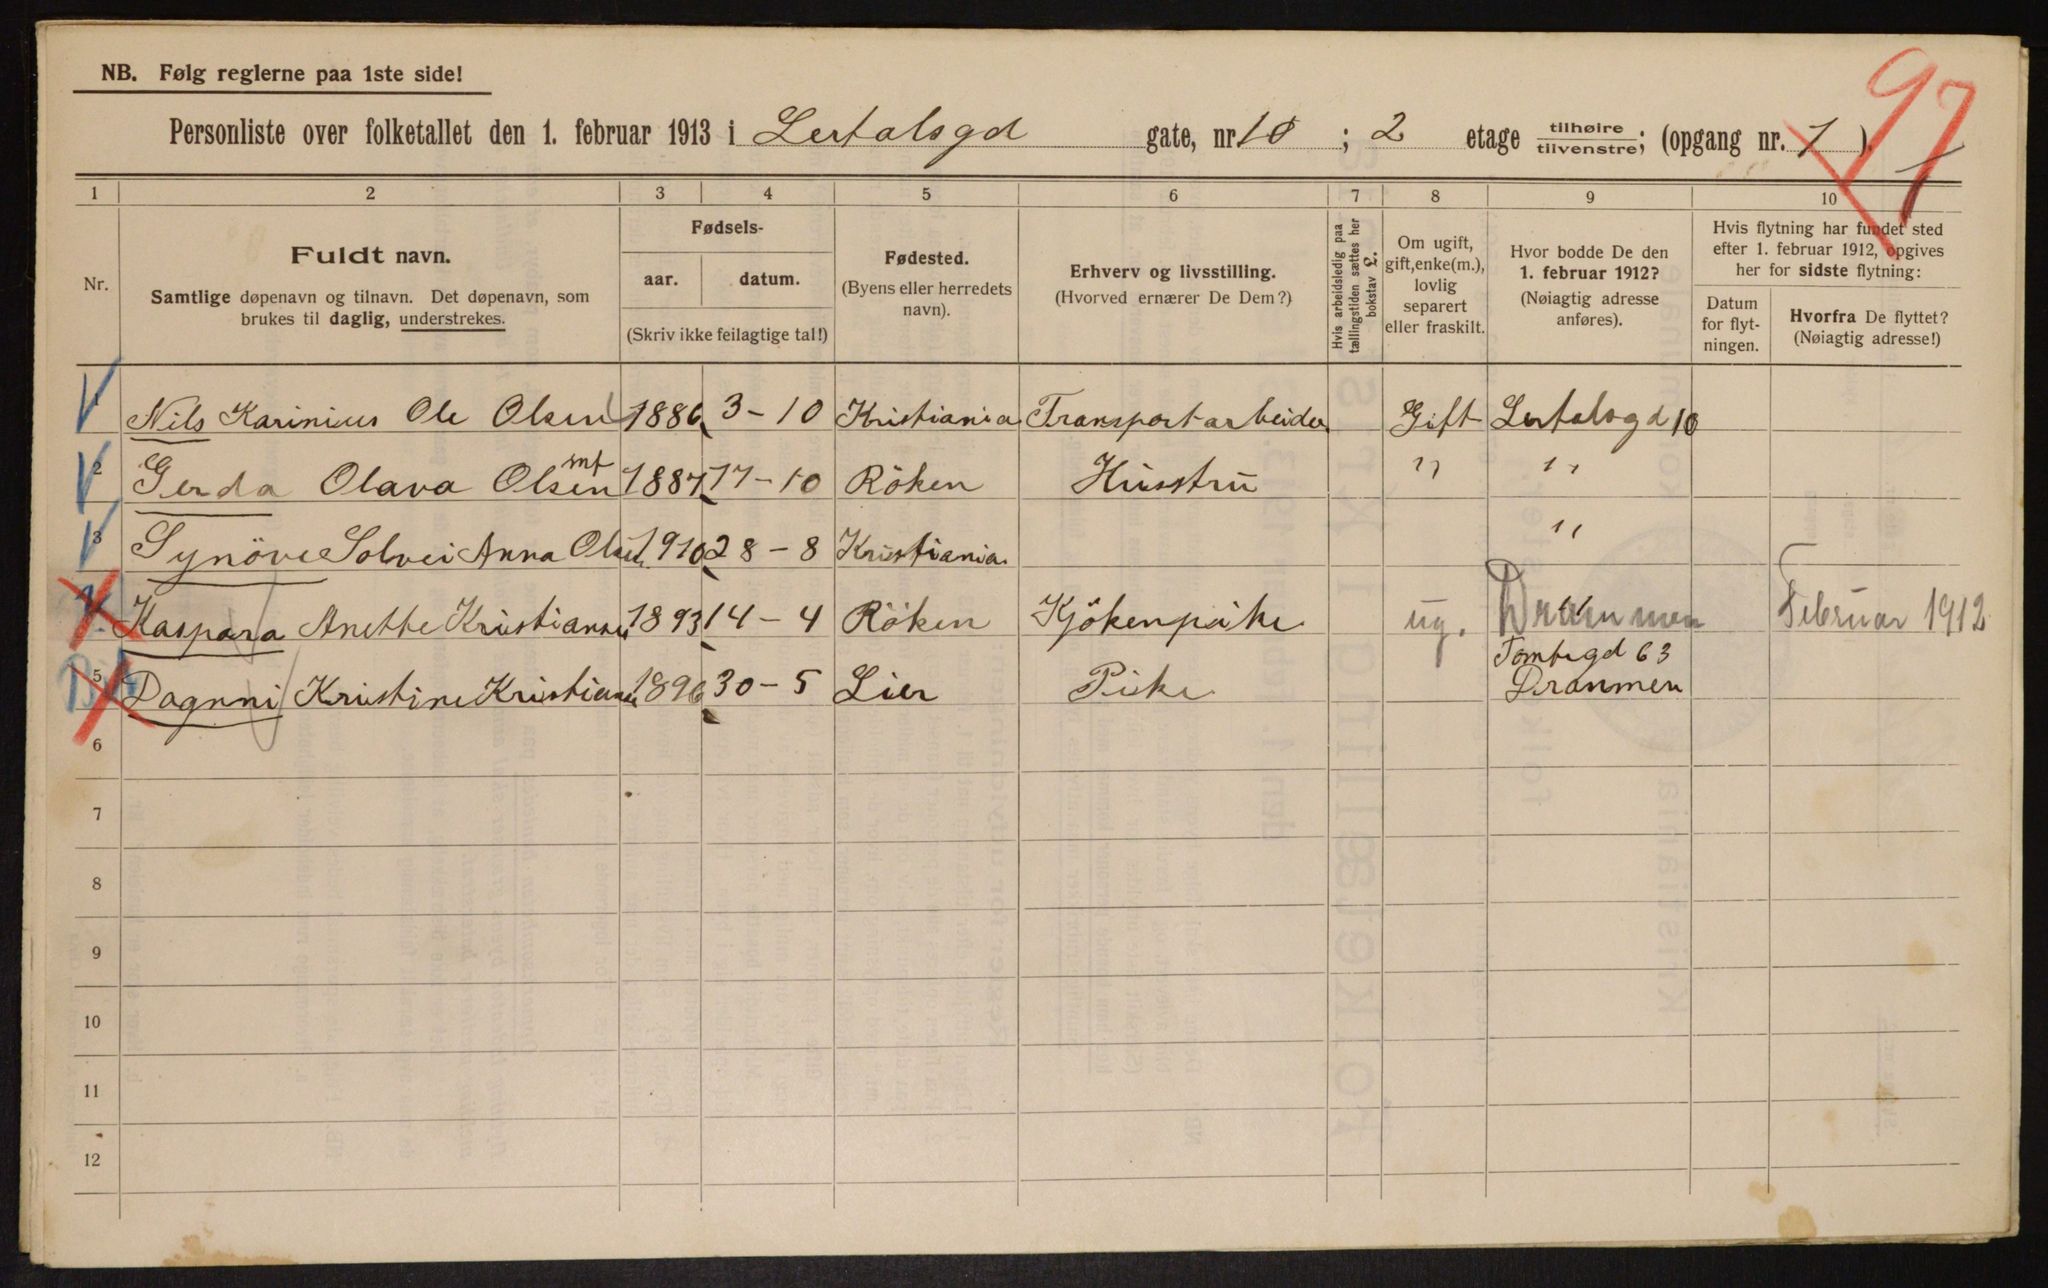 NB. Følg reglerne paa 1ste side!
97
Personliste over folketallet den 1. februar 1913 i Lertalsgd gate, nr. 10 ; 2 etage tilhøire tilvenstre; (opgang nr. 1 ).
1 2 3 4 5 6 7 8 9 10
Nr.
Fuldt navn.
Samtlige døpenavn og tilnavn. Det døpenavn, som
brukes til daglig, understrekes.
Fødsels-
aar. datum.
(Skriv ikke feilagtige tal!)
Fødested.
(Byens eller herredets
navn).
Erhverv og livsstilling.
(Hvorved ernærer De Dem?)
Hvis arbeidsledig paa
tællingstiden sættes her
bokstav L.
Om ugift,
gift, enke(m.),
lovlig
separert
eller fraskilt.
Hvor bodde De den
1. februar 1912?
(Nøiagtig adresse
anføres).
Hvis flytning har fundet sted
efter 1. februar 1912, opgives
her for sidste flytning:
Datum
for flyt-
ningen.
Hvorfra De flyttet?
(Nøiagtig adresse!)
1 Nils Karinius Ole Olsen 1886 3-10 Kristiania Transportarbeider Gift Lertalsgd 10
2 Gerda Olava Olsen 1887 17-10 Röken Husstru " "
3 Synöve Solvei Anna Olsen 1910 28-8 Kristiania "
Kaspara Anette Kristiansen 1893 14-4 Röken Kjökenpike ug. Drammen Februar 1912
5 Dagnni Kristine Kristiansen 1896 30-5 Lier Pike Tomtegd 63
Drammen
6
7
8
9
10
11
12